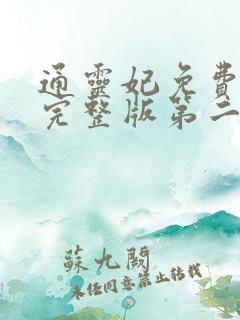 通靈妃免費
完整版第二
蘇九闕
未經同意禁止轉載